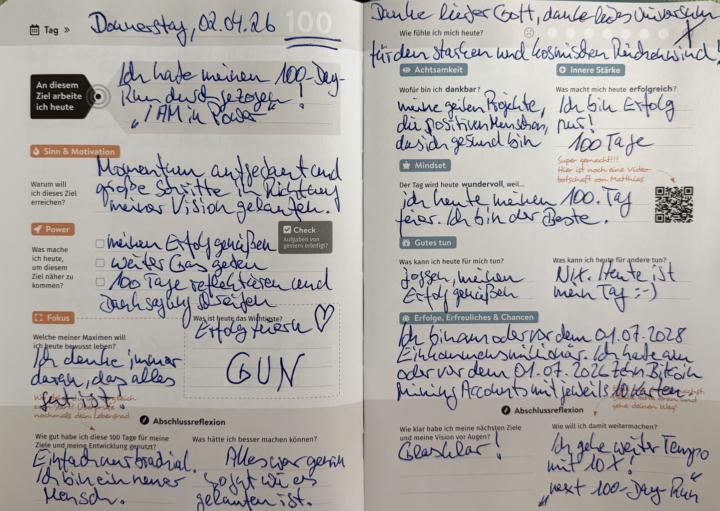 Tag » Donnerstag, 02.04.26
100
An diesem
Ziel arbeite
ich heute
Ich habe meinen 100-Day-
Run durchgezogen!
„I AM in Power"
Sinn & Motivation
Warum will
ich dieses Ziel
erreichen?
Momentum aufgebaut und
große Schritte in Richtung
meiner Vision gelaufen.
Power
Was mache
ich heute,
um diesem
Ziel näher zu
kommen?
Check
Aufgaben von
gestern erledigt?
meinen Erfolg genießen
weiter Gas geben
100 Tage reflektieren und
Danksagung
Fokus
Welche meiner Maximen will
ich heute bewusst leben?
Ich denke immer
daran, das alles
gut ist.
Was ist heute das Wichtigste?
Erfolg feiern ♡
GUN
Abschlussreflexion
Wie gut habe ich diese 100 Tage für meine
Ziele und meine Entwicklung genutzt?
Einfach nur
Ich bin ein neuer
Mensch.
Was hätte ich besser machen können?
Alles war genau
so gut wie es
gelaufen ist.
Danke lieber Gott, danke liebes Universum
Wie fühle ich mich heute?
für den starken und kosmischen Rückenwind!
Achtsamkeit
Wofür bin ich dankbar?
meine geilen Projekte,
die positiven Menschen,
das ich gesund bin
Innere Stärke
Was macht mich heute erfolgreich?
Ich bin Erfolg
pur!
100 Tage
Super gemacht!!!
Hier ist noch eine Video-
botschaft von Matthias
Mindset
Der Tag wird heute wundervoll, weil...
ich heute meinen 100. Tag
feier. Ich bin der Beste.
Gutes tun
Was kann ich heute für mich tun?
Joggen, meinen
Erfolg genießen
Was kann ich heute für andere tun?
Nix. Heute ist
mein Tag :-)
Erfolge, Erfreuliches & Chancen
Ich bin am oder vor dem 01.07.2028
Einkommensmillionär. Ich habe am
oder vor dem 01.07.2026 zehn Bitcoin
Mining Accounts mit jeweils 10 Karten.
gehe deinen Weg!
Abschlussreflexion
Wie klar habe ich meine nächsten Ziele
und meine Vision vor Augen?
Glasklar!
Wie will ich damit weitermachen?
Ich gehe weiter Tempo
mit 10X!
„next 100-Day-Run"